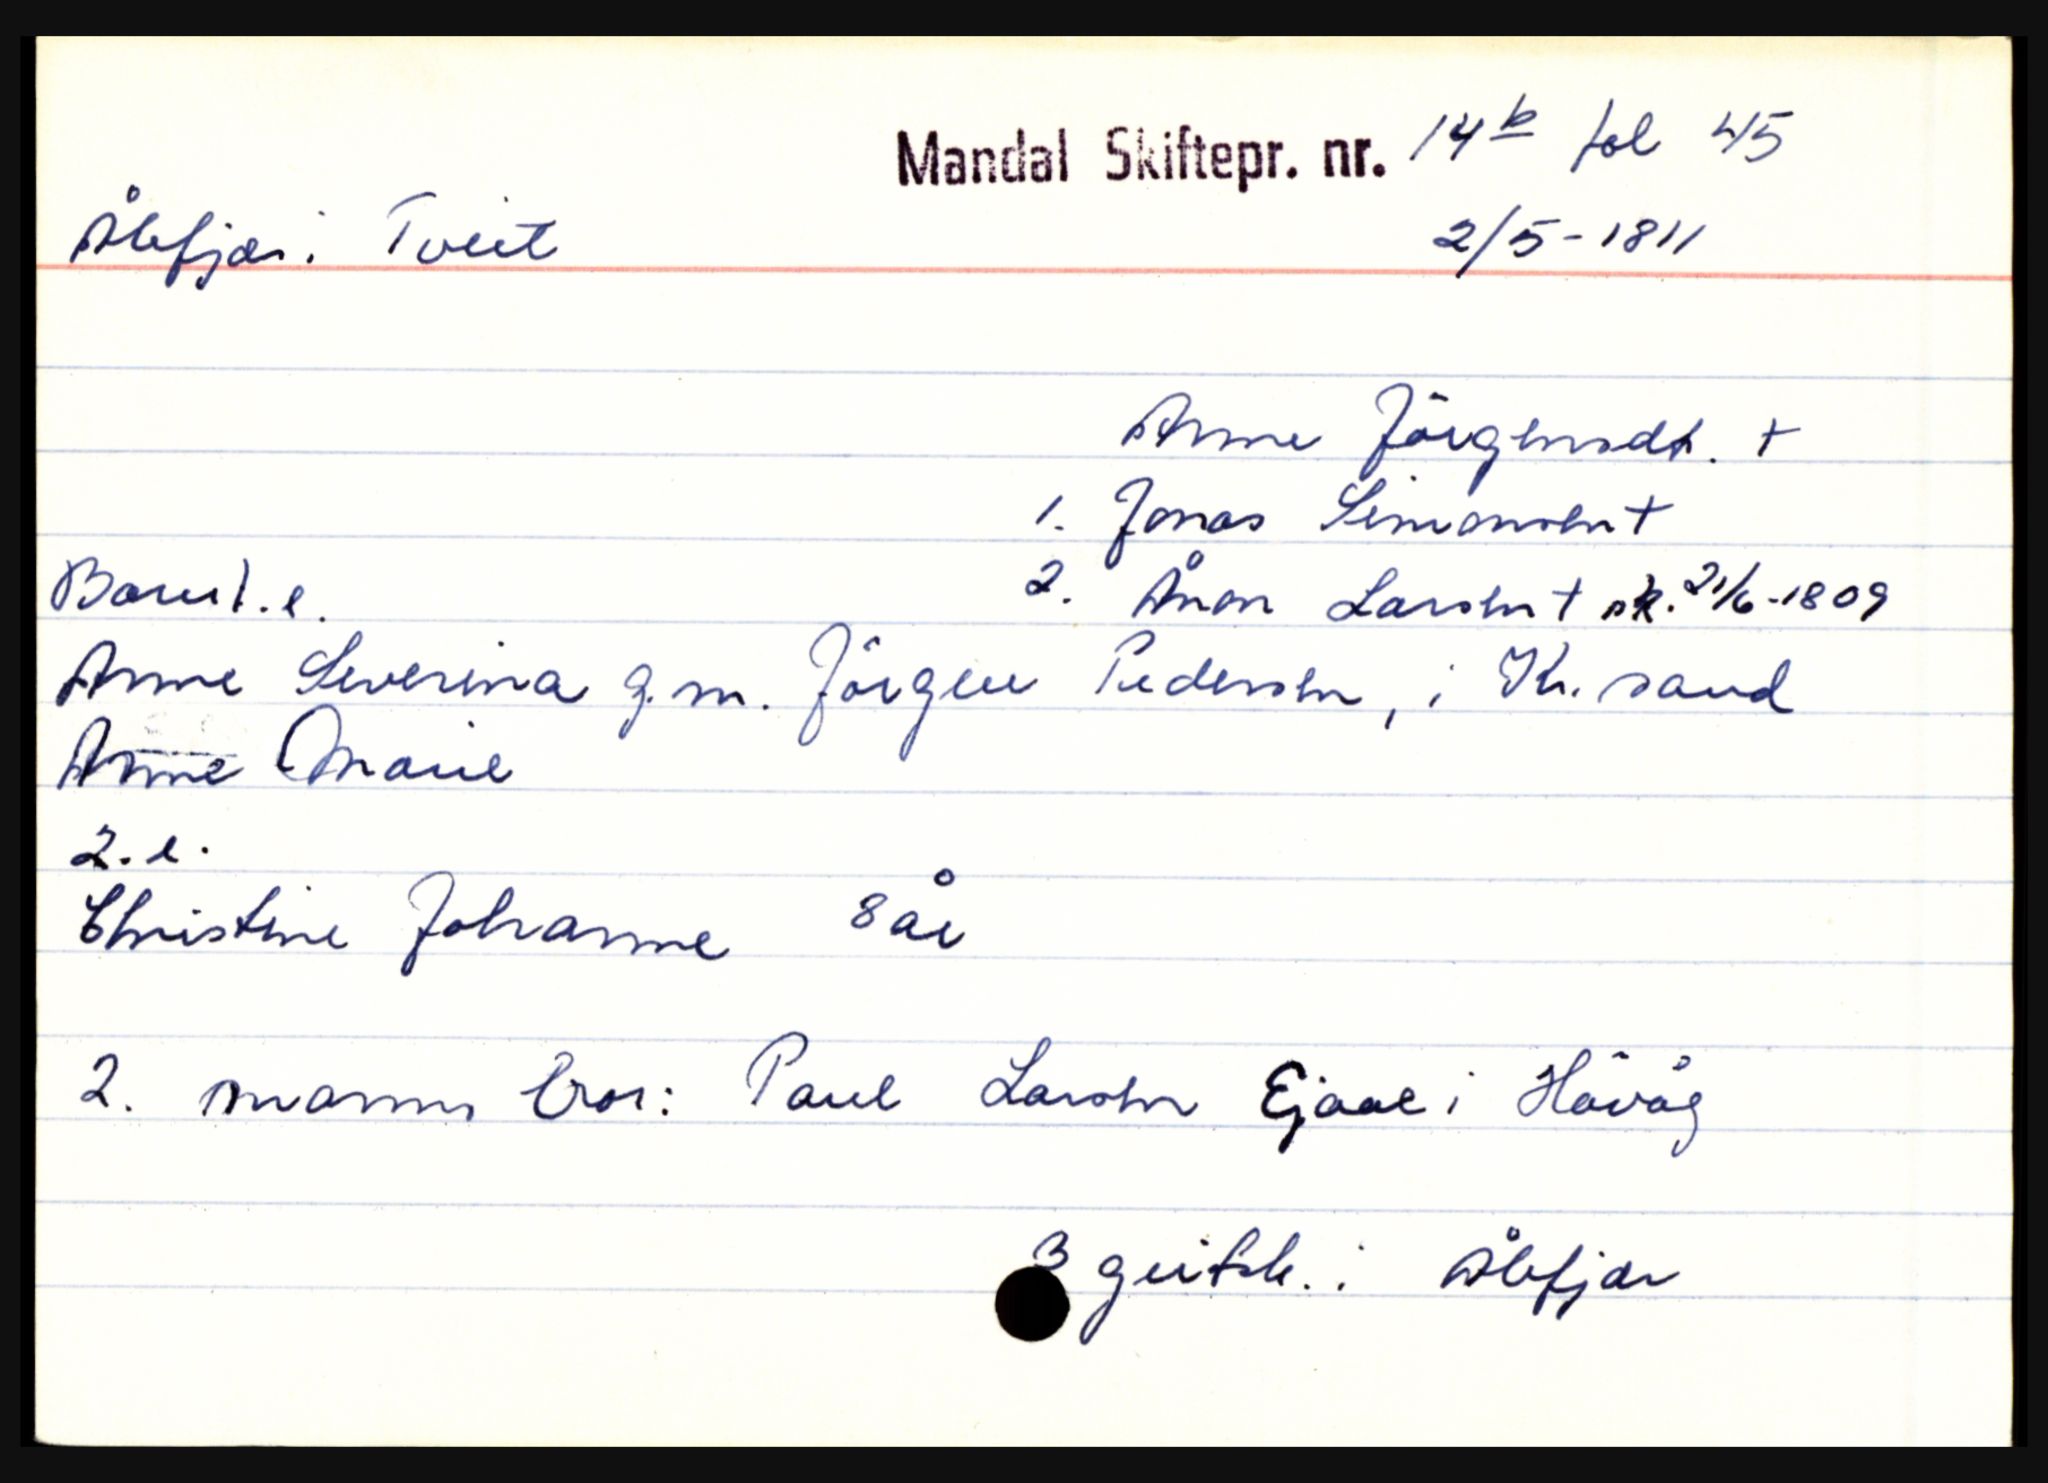 Mandal Skiftepr. nr. 14b fol 45
Ålefjær i Tveit 2/5-1811
Anne Jörgensdt. +
1. Jonas Simonsen +
2. Ånon Larsen + sk. 21/6-1809
Barn 1. e.
Anne Severina g.m. Jörgen Pedersen, i Kr.sand
Anne Marie
2. e.
Christine Johanne 8 år
2. manns bror: Paul Larsen Ejaae i Hövåg
3 geitsk. i Ålefjær